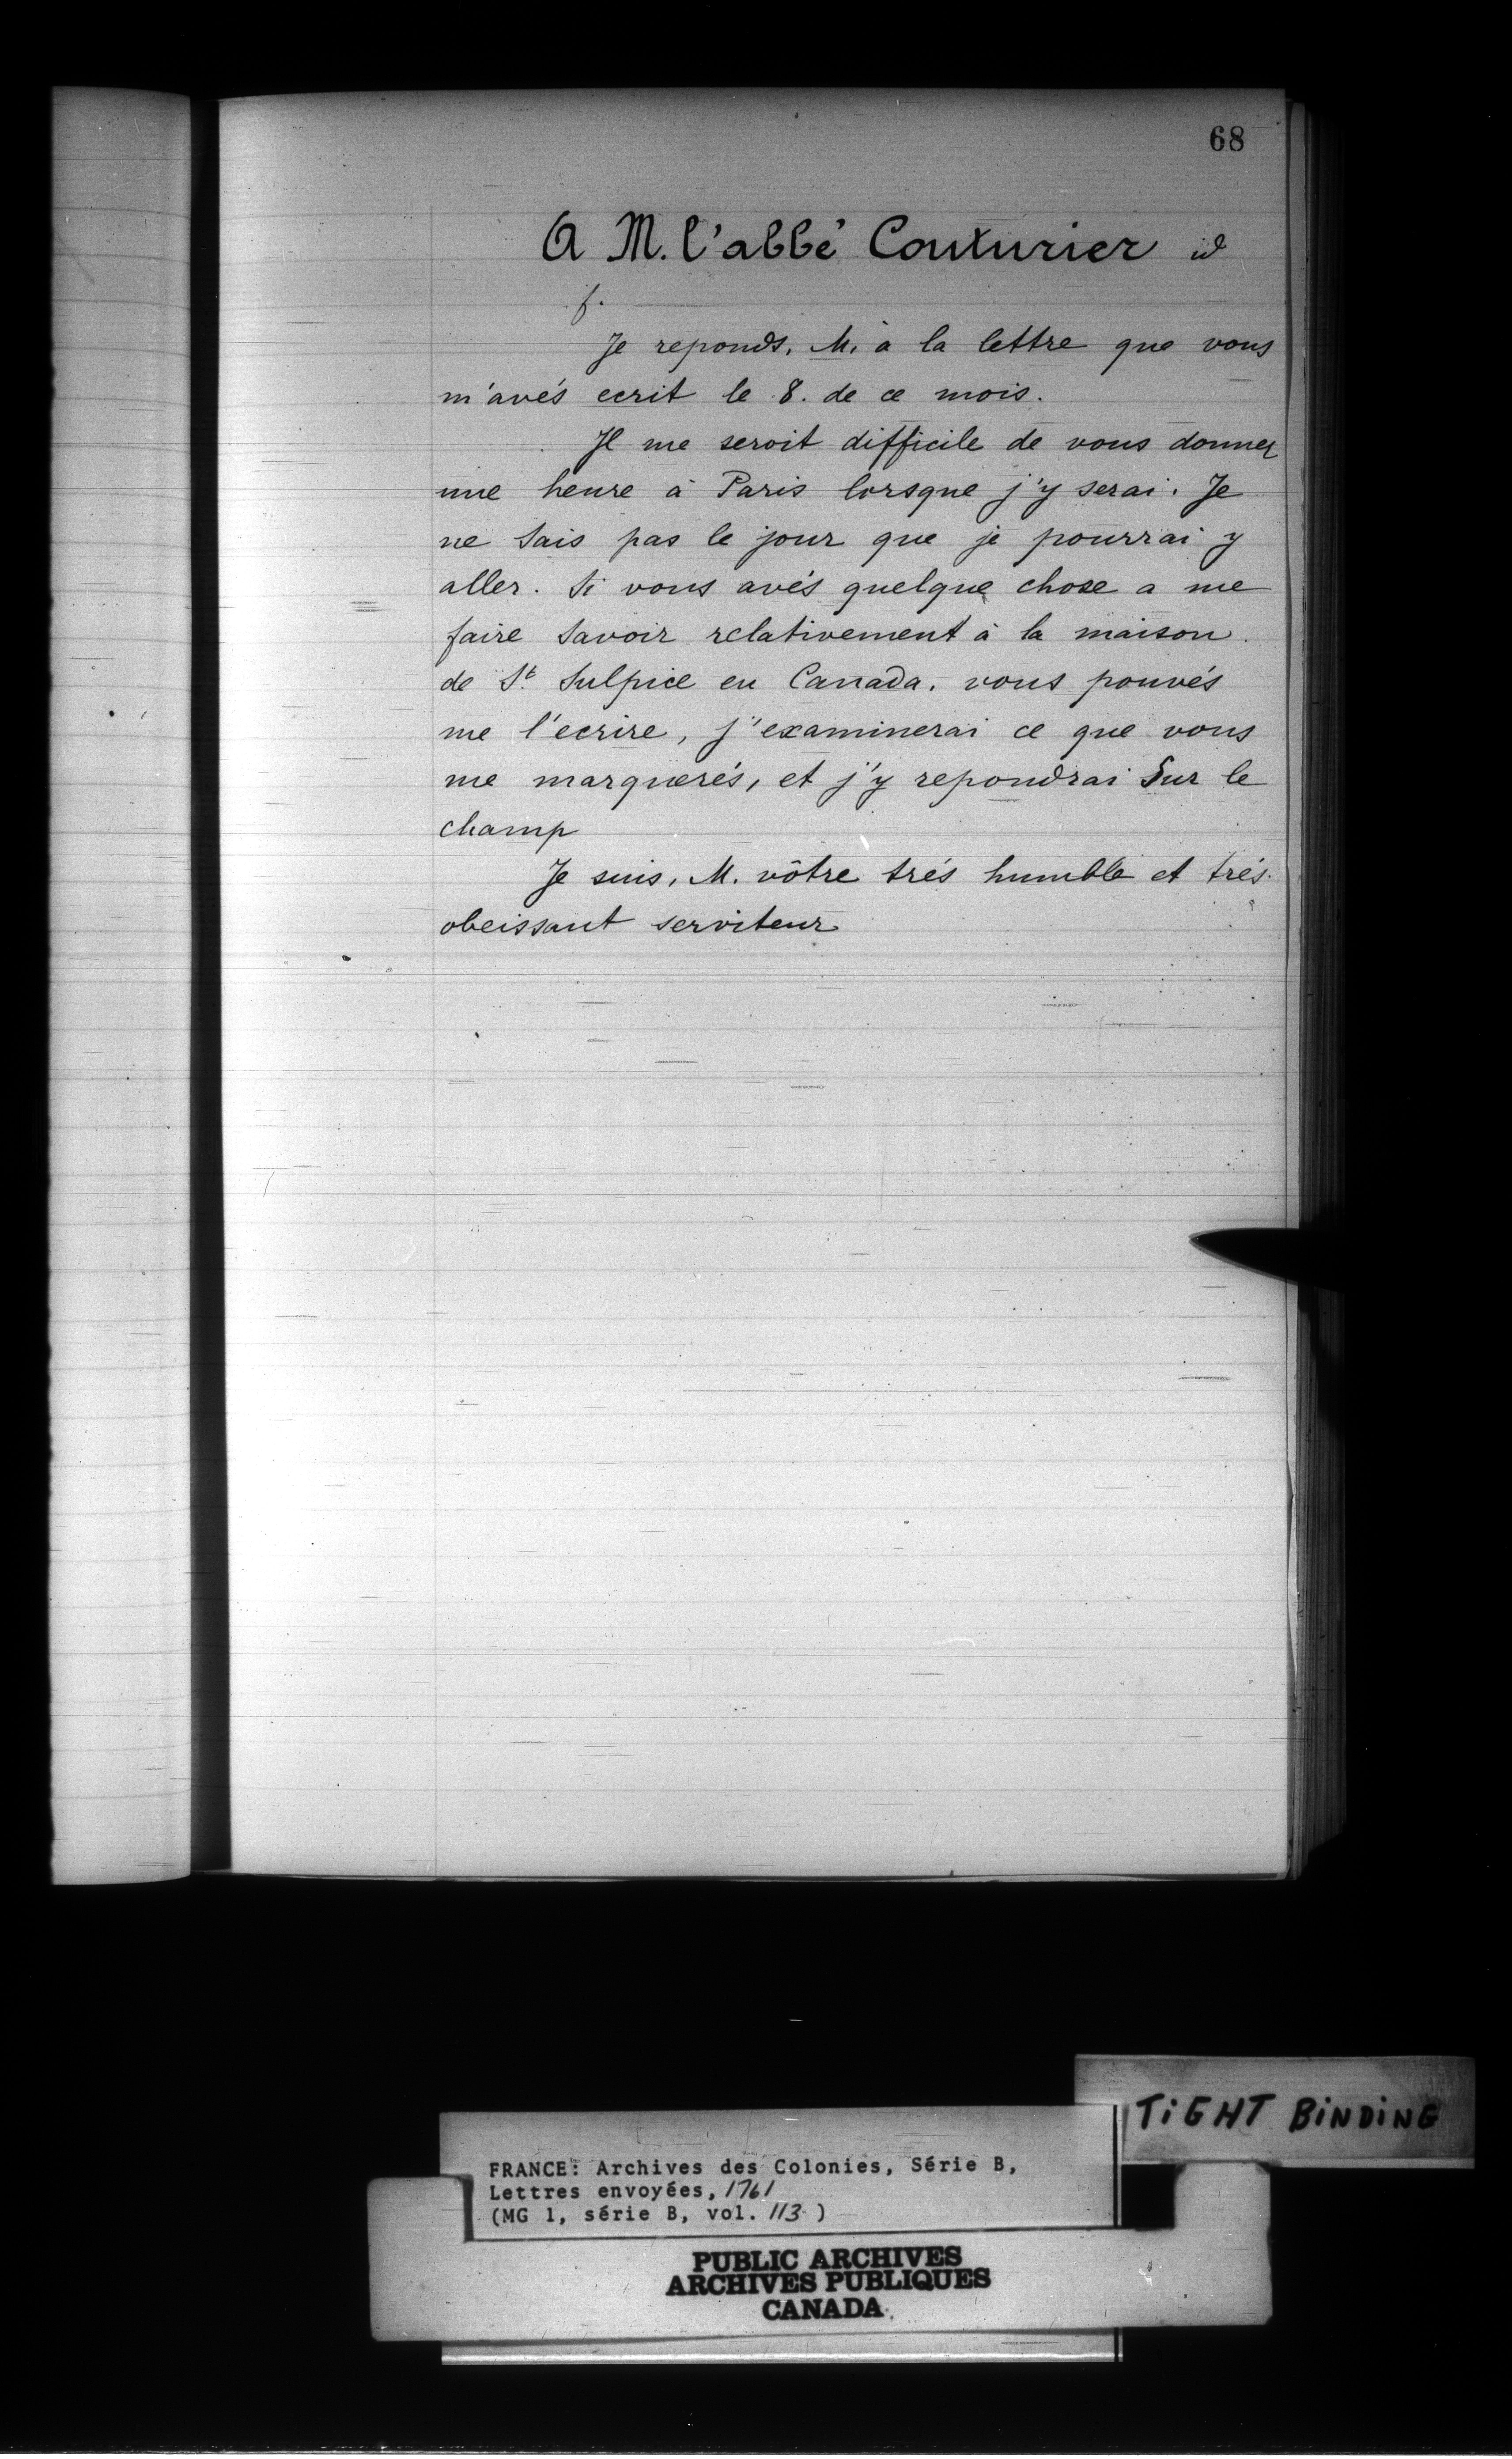 68
A M. l'abbé Couturier id
f.
Je reponds, M. à la lettre que vous
m'avés ecrit le 8. de ce mois.
Il me seroit difficile de vous donner
une heure à Paris lorsque j'y serai. Je
ne sais pas le jour que je pourrai y
aller. Si vous avés quelque chose a me
faire savoir relativement à la maison
de St. Sulpice en Canada, vous pouvés
me l'ecrire, j'examinerai ce que vous
me marquerés, et j'y repondrai sur le
champ
Je suis, M. vôtre trés humble et trés
obeissant serviteur
TiGHT BiNDiNG
FRANCE: Archives des Colonies, Série B,
Lettres envoyées, 1761
(MG 1, série B, vol. 113 )
PUBLIC ARCHIVES
ARCHIVES PUBLIQUES
CANADA